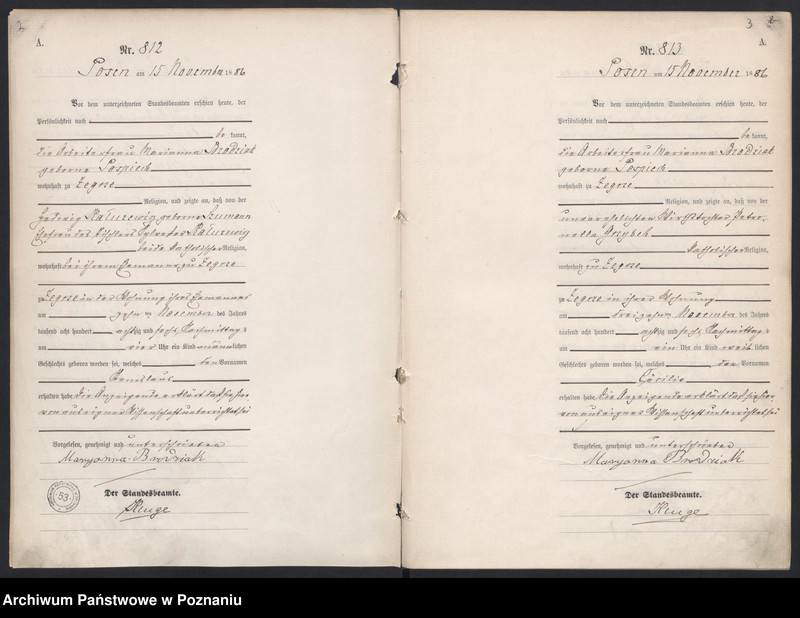 2
A.
Nr. 812
Posen am 15 November 1886
Vor dem unterzeichneten Standesbeamten erschien heute, der
Persönlichkeit nach
be kannt,
die Arbeiterfrau Marianna Brodziak
geborne Pospiech
wohnhaft zu Zegrze
Religion, und zeigte an, daß von der
Hedwig geborne Szumann
Ehefrau des Tischlers
beide katholischer Religion,
wohnhaft bei ihrem Ehemanne zu Zegrze
zu Zegrze in der Wohnung ihres Ehemannes
am zehnten November des Jahres
tausend acht hundert achtzig und sechs Nachmittags
um vier Uhr ein Kind männlichen
Geschlechts geboren worden sei, welches den Vornamen
Stanislaus
erhalten habe. Die Anzeigende erklärt daß sie hier-
von aus eigner Wissenschaft unterrichtet sei
Vorgelesen, genehmigt und unterschrieben
Maryanna Brodziak
Der Standesbeamte.
Kluge
53
3
A.
Nr. 813
Posen am 15 November 1886
Vor dem unterzeichneten Standesbeamten erschien heute, der
Persönlichkeit nach
be kannt,
die Arbeiterfrau Marianna Brodziak
geborne Pospiech
wohnhaft zu Zegrze
Religion, und zeigte an, daß von der
unverehelichten Wirthstochter Petro-
nella Grzybek
katholischer Religion,
wohnhaft zu Zegrze
zu Zegrze in ihrer Wohnung
am dreizehnten November des Jahres
tausend acht hundert achtzig und sechs Nachmittags
um ein Uhr ein Kind weiblichen
Geschlechts geboren worden sei, welches den Vornamen
Cäcilie
erhalten habe. Die Anzeigende erklärt daß sie hier-
von aus eigner Wissenschaft unterrichtet sei
Vorgelesen, genehmigt und unterschrieben
Maryanna Brodziak
Der Standesbeamte.
Kluge
Archiwum Państwowe w Poznaniu